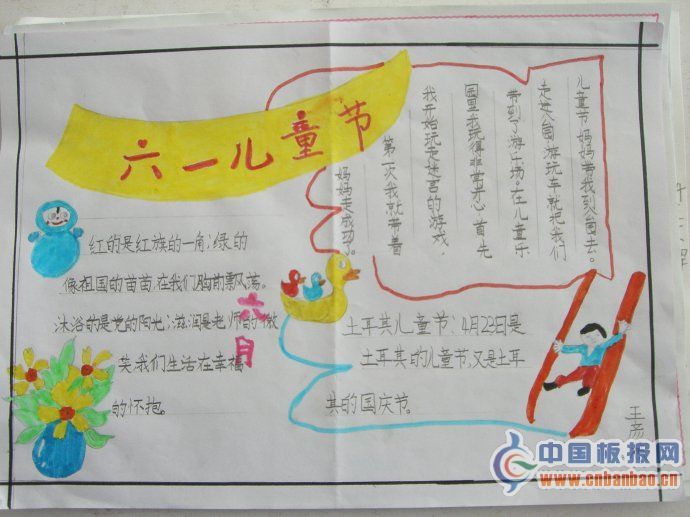 六一儿童节
儿童节妈妈带我到公园去。
走进公园游玩车就把我们
带到了游乐场。在儿童乐
园里我玩得非常开心首先
我开始玩走迷宫的游戏,
第一次我就带着
妈妈走成功了。
红的是红旗的一角;绿的
像祖国的苗苗,在我们胸前飘荡。
沐浴的是党的阳光;滋润是老师的微
笑,我们生活在幸福
的怀抱。
六月
土耳其儿童节:4月23日是
土耳其的儿童节,又是土耳
其的国庆节。
中国板报网
www.cnbanbao.cn